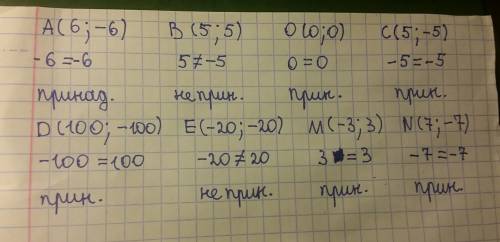 A(6;-6) B(5;5) O(0;0) C(5;-5)
-6=-6 5≠-5 0=0 -5=-5
принад. не прин. прин. прин.
D(100;-100) E(-20;-20) M(-3;3) N(7;-7)
-100=100 -20≠20 3=3 -7=-7
прин. не прин. прин. прин.